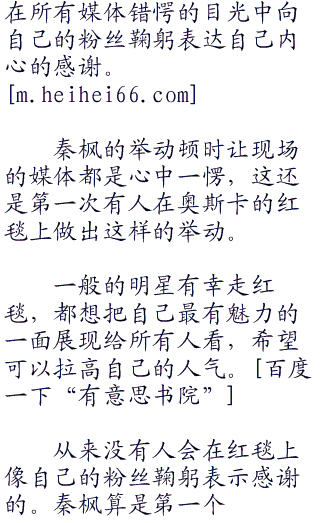 在所有媒体错愕的目光中向
自己的粉丝鞠躬表达自己内
心的感谢。
[m.heihei66.com]
秦枫的举动顿时让现场
的媒体都是心中一愣，这还
是第一次有人在奥斯卡的红
毯上做出这样的举动。
一般的明星有幸走红
毯，都想把自己最有魅力的
一面展现给所有人看，希望
可以拉高自己的人气。[百度
一下“有意思书院”]
从来没有人会在红毯上
像自己的粉丝鞠躬表示感谢
的。秦枫算是第一个